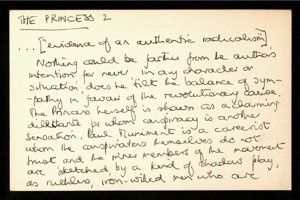 THE PRINCESS 2
...["evidence of an authentic radicalism"]
Nothing could be further from the author's
intention, for never, in any character or
situation, does he tilt the balance of sym-
pathy in favour of the revolutionary cause.
The Princess herself is shown as a charming
dilettante to whom conspiracy is another
sensation, Paul Muniment is a careerist
whom the conspirators themselves do not
trust and the inner members of the movement
are sketched, by a kind of shadow play,
as ruthless, iron-willed men who are